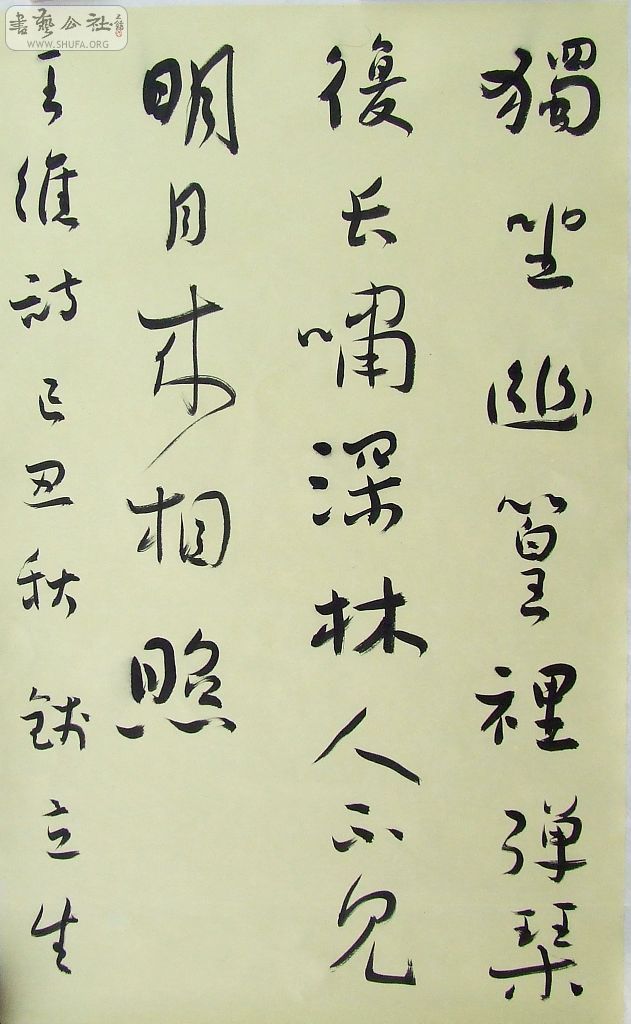 書藝公社
WWW.SHUFA.ORG
獨坐幽篁裡弹琴
復长嘯深林人不見
明月来相照
王維詩己丑秋錢立生